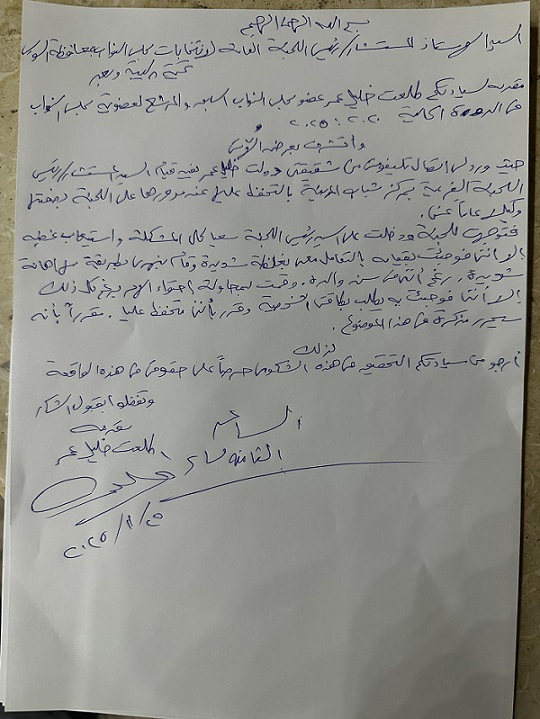 بسم الله الرحمن الرحيم
السيد الأستاذ المستشار / رئيس اللجنة العامة لانتخابات مجلس النواب بمحافظة السويس
تحية طيبة وبعد
مقدمه لسيادتكم طلعت خليل عمر عضو مجلس النواب السابق والمرشح لعضوية مجلس النواب
عن الدورة الحالية ٢٠٢٥ : ٢٠٣٠
وأتشرف بعرض الآتى
حيث ورد لى اتصال تليفونى من شقيقى دولت خليل عمر يفيد قيام السيد المستشار رئيس
اللجنة الفرعية بمركز شباب بالتحفظ عليها عند مرورها على اللجنة بصفتها
وكيلا عاماً عنى.
فتوجهت للجنة ودخلت على السيد رئيس اللجنة سعيا لحل المشكلة واستيعاب غضبه
إلا أننى فوجئت بقيامه بالتعامل معى بغلظة شديدة وقام بنهرى بطريقة بها إهانة
شديدة. رغم أننى فى سن والده. وقمت بمحاولة احتواء الأمر برغم كل ذلك
إلا أننى فوجئت به يطلب بطاقتى الشخصية وقرر بأننى متحفظ عليا. مقرراً بأنه
سيحرر مذكرة فى هذا الموضوع.
لذلك
أرجو من سيادتكم التحقيق فى هذه الشكوى حرصاً على حقوقى فى هذه الواقعة
وتفضلوا بقبول الشكر
الساعه
مقدمه
الثامنه مساءً
طلعت خليل عمر